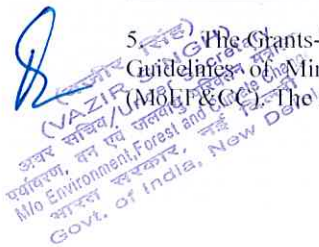 5. The Grants-
Guidelines of Min
(MoEF&CC). The
(वज़ीर सिंह)
(VAZIR SINGH)
अवर सचिव/Under Secretary
पर्यावरण, वन एवं जलवायु परिवर्तन
M/o Environment, Forest and Climate
भारत सरकार, नई दिल्ली
Govt. of India, New Delhi